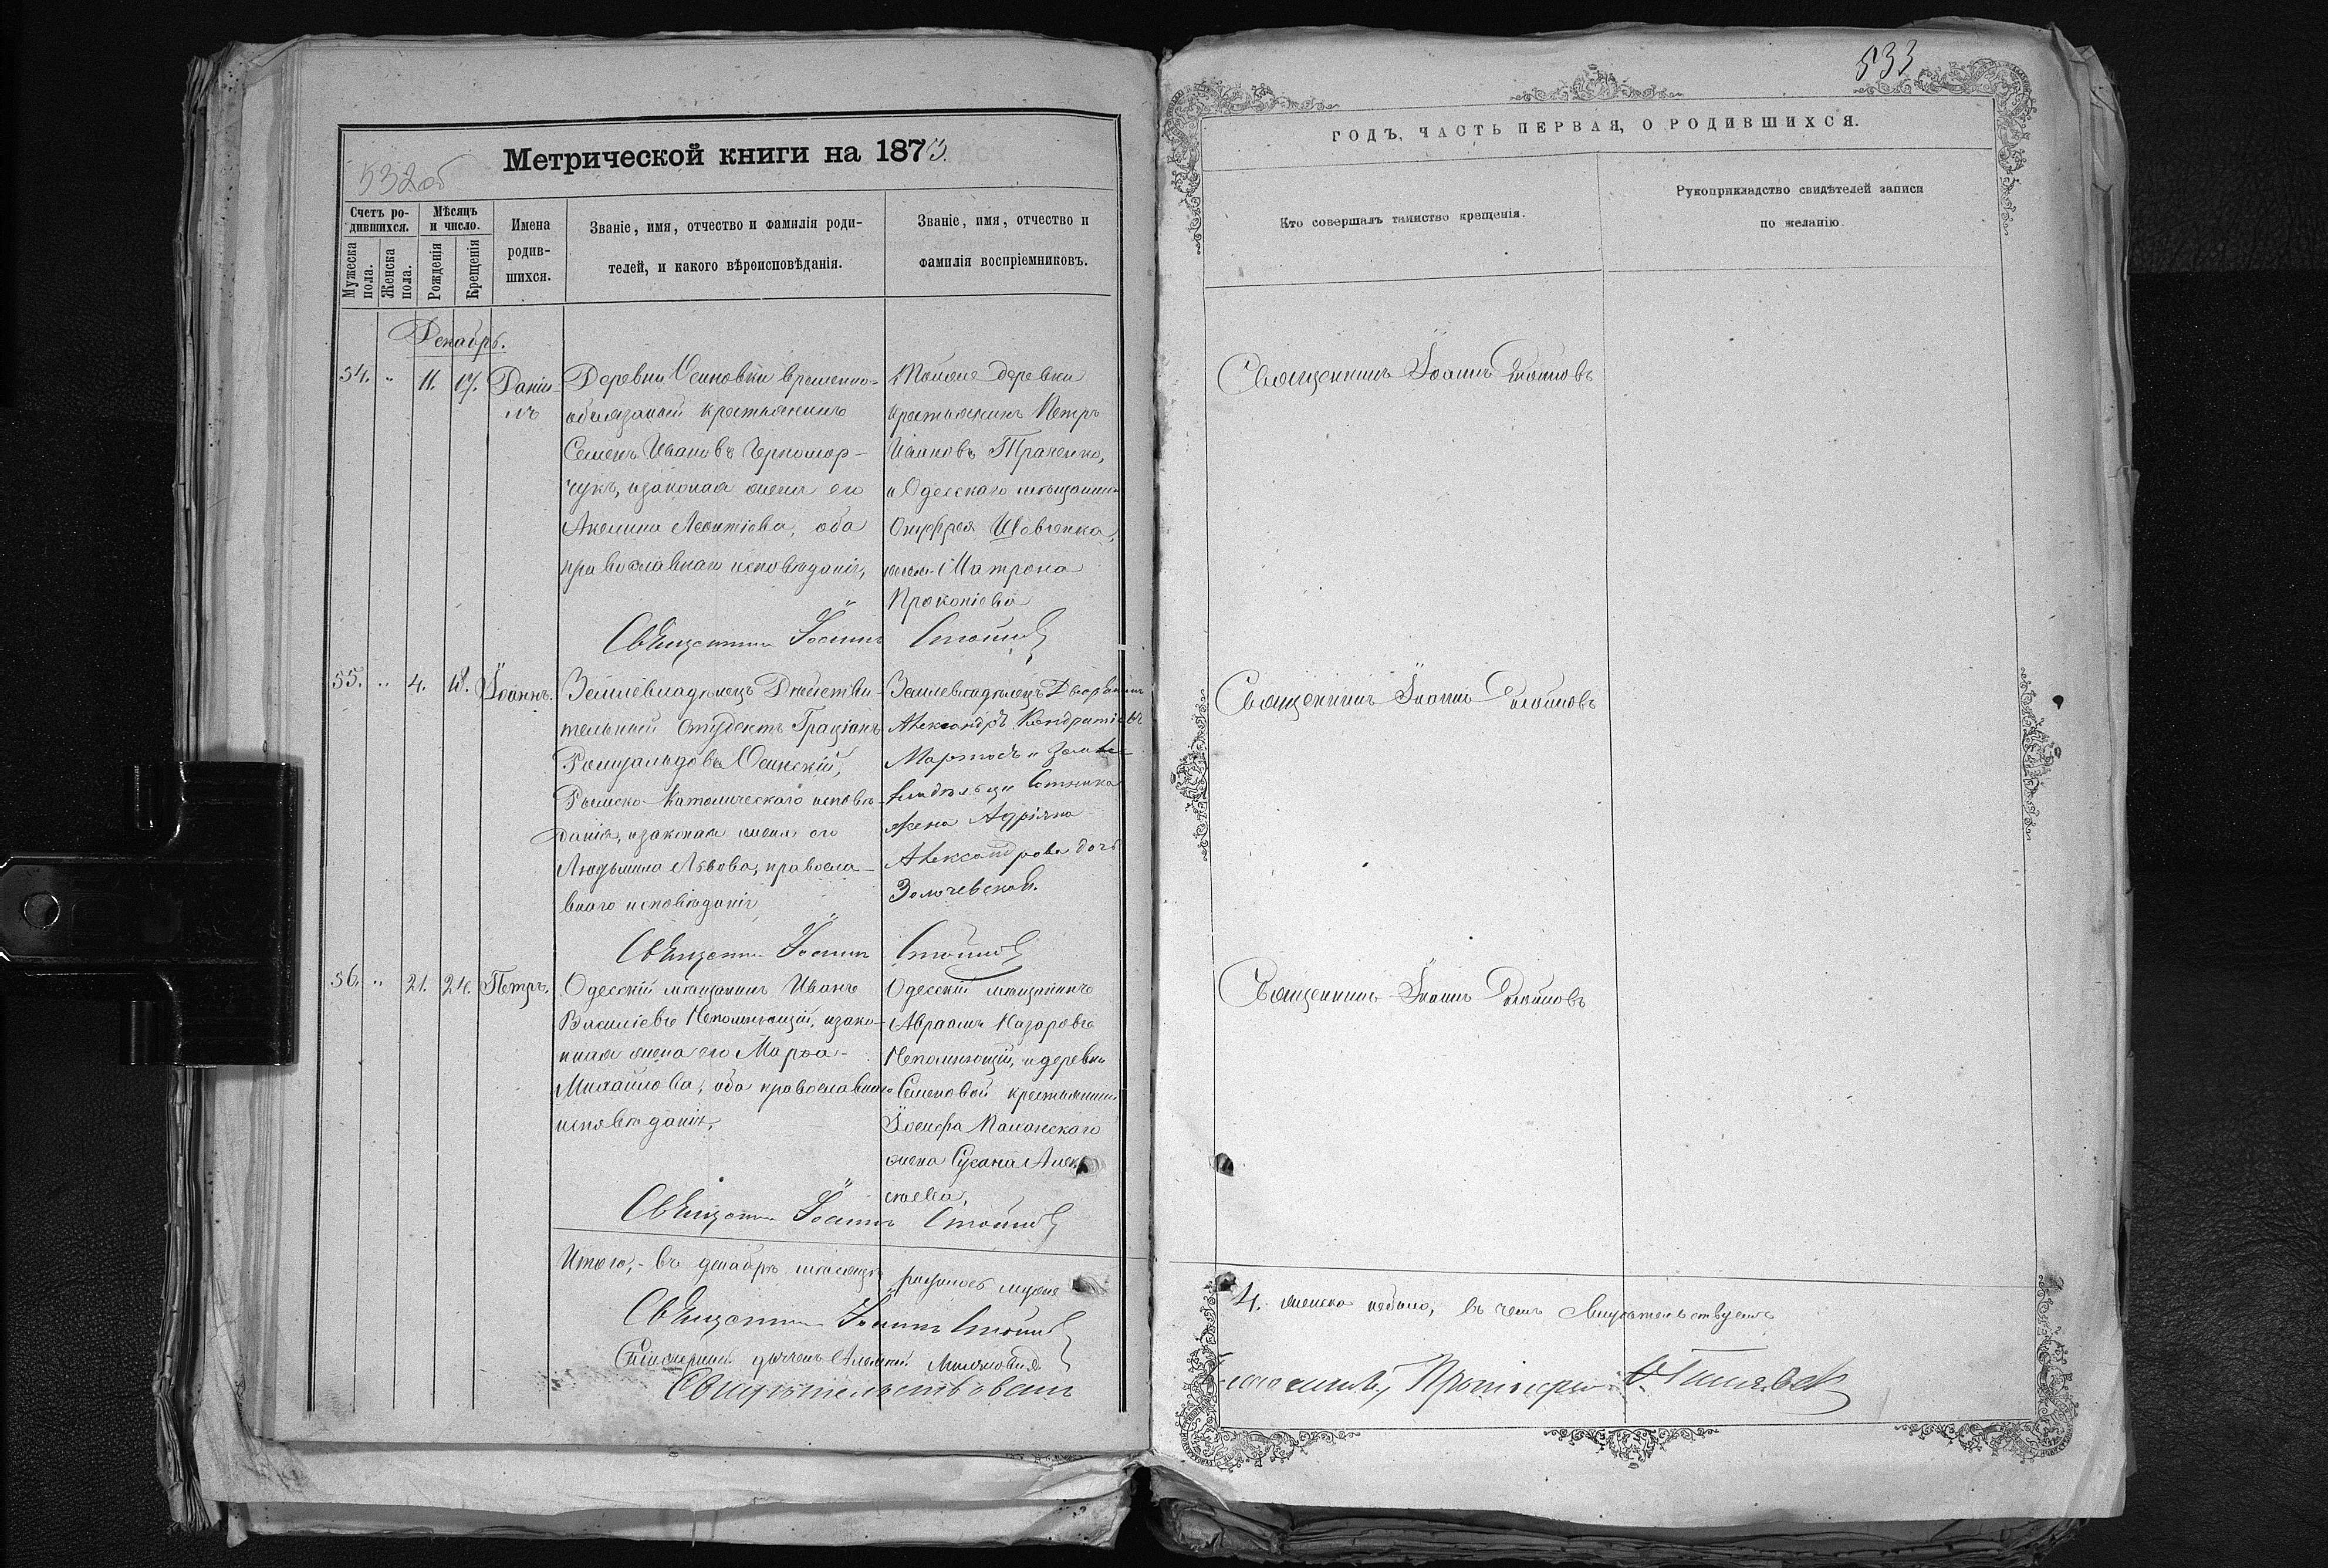 532об
Метрической книги на 1873.
Счетъ ро-
дившихся.
Мужеска
пола.
Женска
пола.
Мѣсяцъ
и число.
Рожденія
Крещенія
Имена
родив-
шихся.
Званіе, имя, отчество и фамилія роди-
телей, и какого вѣроисповѣданія.
Званіе, имя, отчество и
фамилія воспріемниковъ.
Декабрь.
54. " 11. 17. Данiи-
лъ
Деревни Осиповки временно-
обязанный крестьянинъ
Семенъ Ивановъ Черномор-
чукъ, изаконая жена его
Акилина Леонтіева, оба
православнаго исповѣданія,
Тойже деревни
крестьянинъ Петръ
Ивановъ Ткаченко,
и Одесскаго мѣщанина
Онуфрея Шевченка,
жена Матрона
Прокопіева
Священникъ Іоаннъ Стойновъ
55. " 4. 18. Іоаннъ.
Землевладѣлецъ Дѣйстви-
тельный Студентъ Граціанъ
Ромуальдовъ Осинскій,
Римско-Католическаго исповѣ-
данія, изаконая жена его
Людьмила Львова, правосла-
внаго исповѣданія
Землевладѣлецъ Дворянинъ
Александръ Кондратіевъ
Мартосъ и земле
владѣльца Сотника
жена Адріяна
Александрова дочь
Золочевская.
Священникъ Іоаннъ Стойновъ
56. " 21. 24. Петръ.
Одесскій мѣщанинъ Иванъ
Василіевъ Непомнющій, изако-
нная жена его Марѳа
Михайлова, оба православнаго
исповѣданія,
Одесскій мѣщанинъ
Авраамъ Назаровъ
Непомнющій, и деревни
Семеновой крестьянина
Іосифа
жена Сусана Алек
сіева,
Священникъ Іоаннъ Стойновъ
Итого, - въ декабрѣ мѣсяцѣ родилось мужеска
Священникъ Іоаннъ Стойновъ
Свидѣтельствовалъ
533
ГОДЪ, ЧАСТЬ ПЕРВАЯ, О РОДИВШИХСЯ.
Кто совершалъ таинство крещенія.
Рукоприкладство свидѣтелей записи
по желанію.
Священникъ Іоаннъ Стойновъ
Священникъ Іоаннъ Стойновъ
Священникъ Іоаннъ Стойновъ
4. женска небыло, въ чемъ Свидѣтельствуемъ
Протоіерей